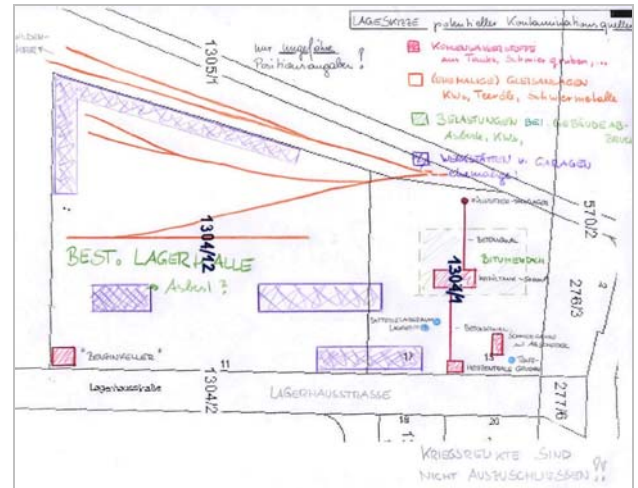 LAGESKIZZE potentieller Kontaminationsquellen
nur ungefähre
Positionsangaben!
KOHLENWASSERSTOFFE
aus Tanks, Schmiergruben,...
(EHEMALIGE) GLEISANLAGEN
KWs, Teeröle, Schwermetalle
BELASTUNGEN BEI GEBÄUDEAB-
BRUCH
Asbest, KWs,
WERKSTÄTTEN u. GARAGEN
ehemalige!
1305/1
570/2
276/3
2
277/6
1304/12
1304/1
1304/2
BEST. LAGERHALLE
Asbest?
BITUMENDACH
BETONKANAL
BETONKANAL
HEIZZENTRALE
"BENZINKELLER"
11
17
15
Lagerhausstraße
LAGERHAUSSTRASSE
18
20
KRIEGSRELIKTE SIND
NICHT AUSZUSCHLIESSEN!!